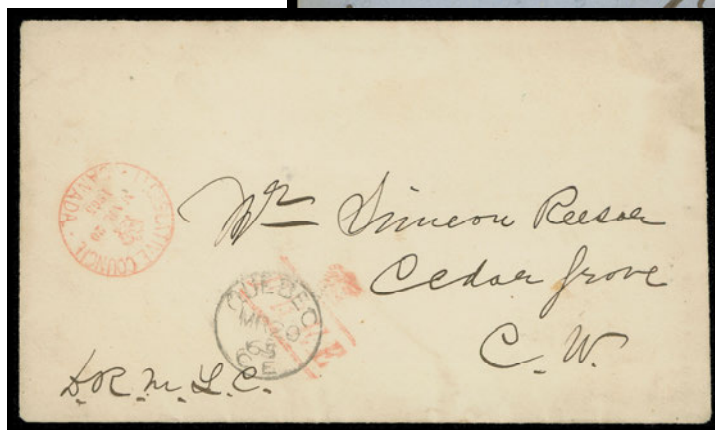 LEGISLATIVE COUNCIL
MAR 20
1865
CANADA
Mr Simeon Reesor
Cedar Grove
C.W.
QUEBEC
MR 20
65
C.E
D.R.M.L.C.